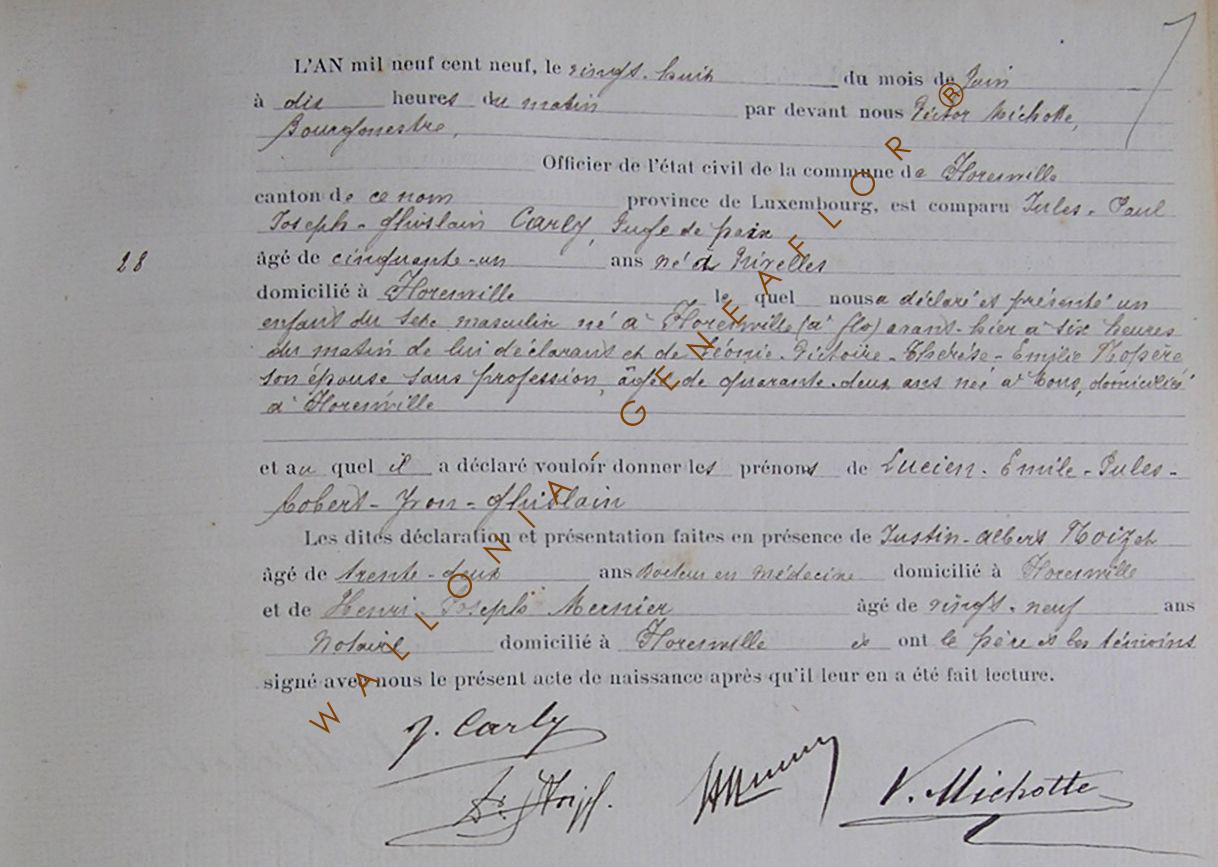 L'AN mil neuf cent neuf, le vingt-huit du mois de Juin
à dix heures du matin par devant nous Victor Michotte,
Bourgmestre,
Officier de l'état civil de la commune de Florenville
canton de ce nom province de Luxembourg, est comparu Jules-Paul
Joseph-Ghislain Carly, Juge de paix
28
âgé de cinquante-un ans né à Nivelles
domicilié à Florenville le quel nous a déclaré et présenté un
enfant du sexe masculin né à Florenville avant-hier à six heures
du matin de lui déclarant et de Léonie-Victoire-Thérèse-Emilie
son épouse sans profession, âgée de quarante-deux ans née à domicilié
à Florenville
et au quel il a déclaré vouloir donner les prénoms de Lucien-Emile-Jules-
Robert-Yvon-Ghislain
Les dites déclaration et présentation faites en présence de Justin-Albert
âgé de trente-deux ans Docteur en Médecine domicilié à Florenville
et de Henri-Joseph Mernier âgé de vingt-neuf ans
Notaire domicilié à Florenville et ont le père et les témoins
signé avec nous le présent acte de naissance après qu'il leur en a été fait lecture.
J. Carly
V. Michotte
WALLONIA GENEAFLOR ®